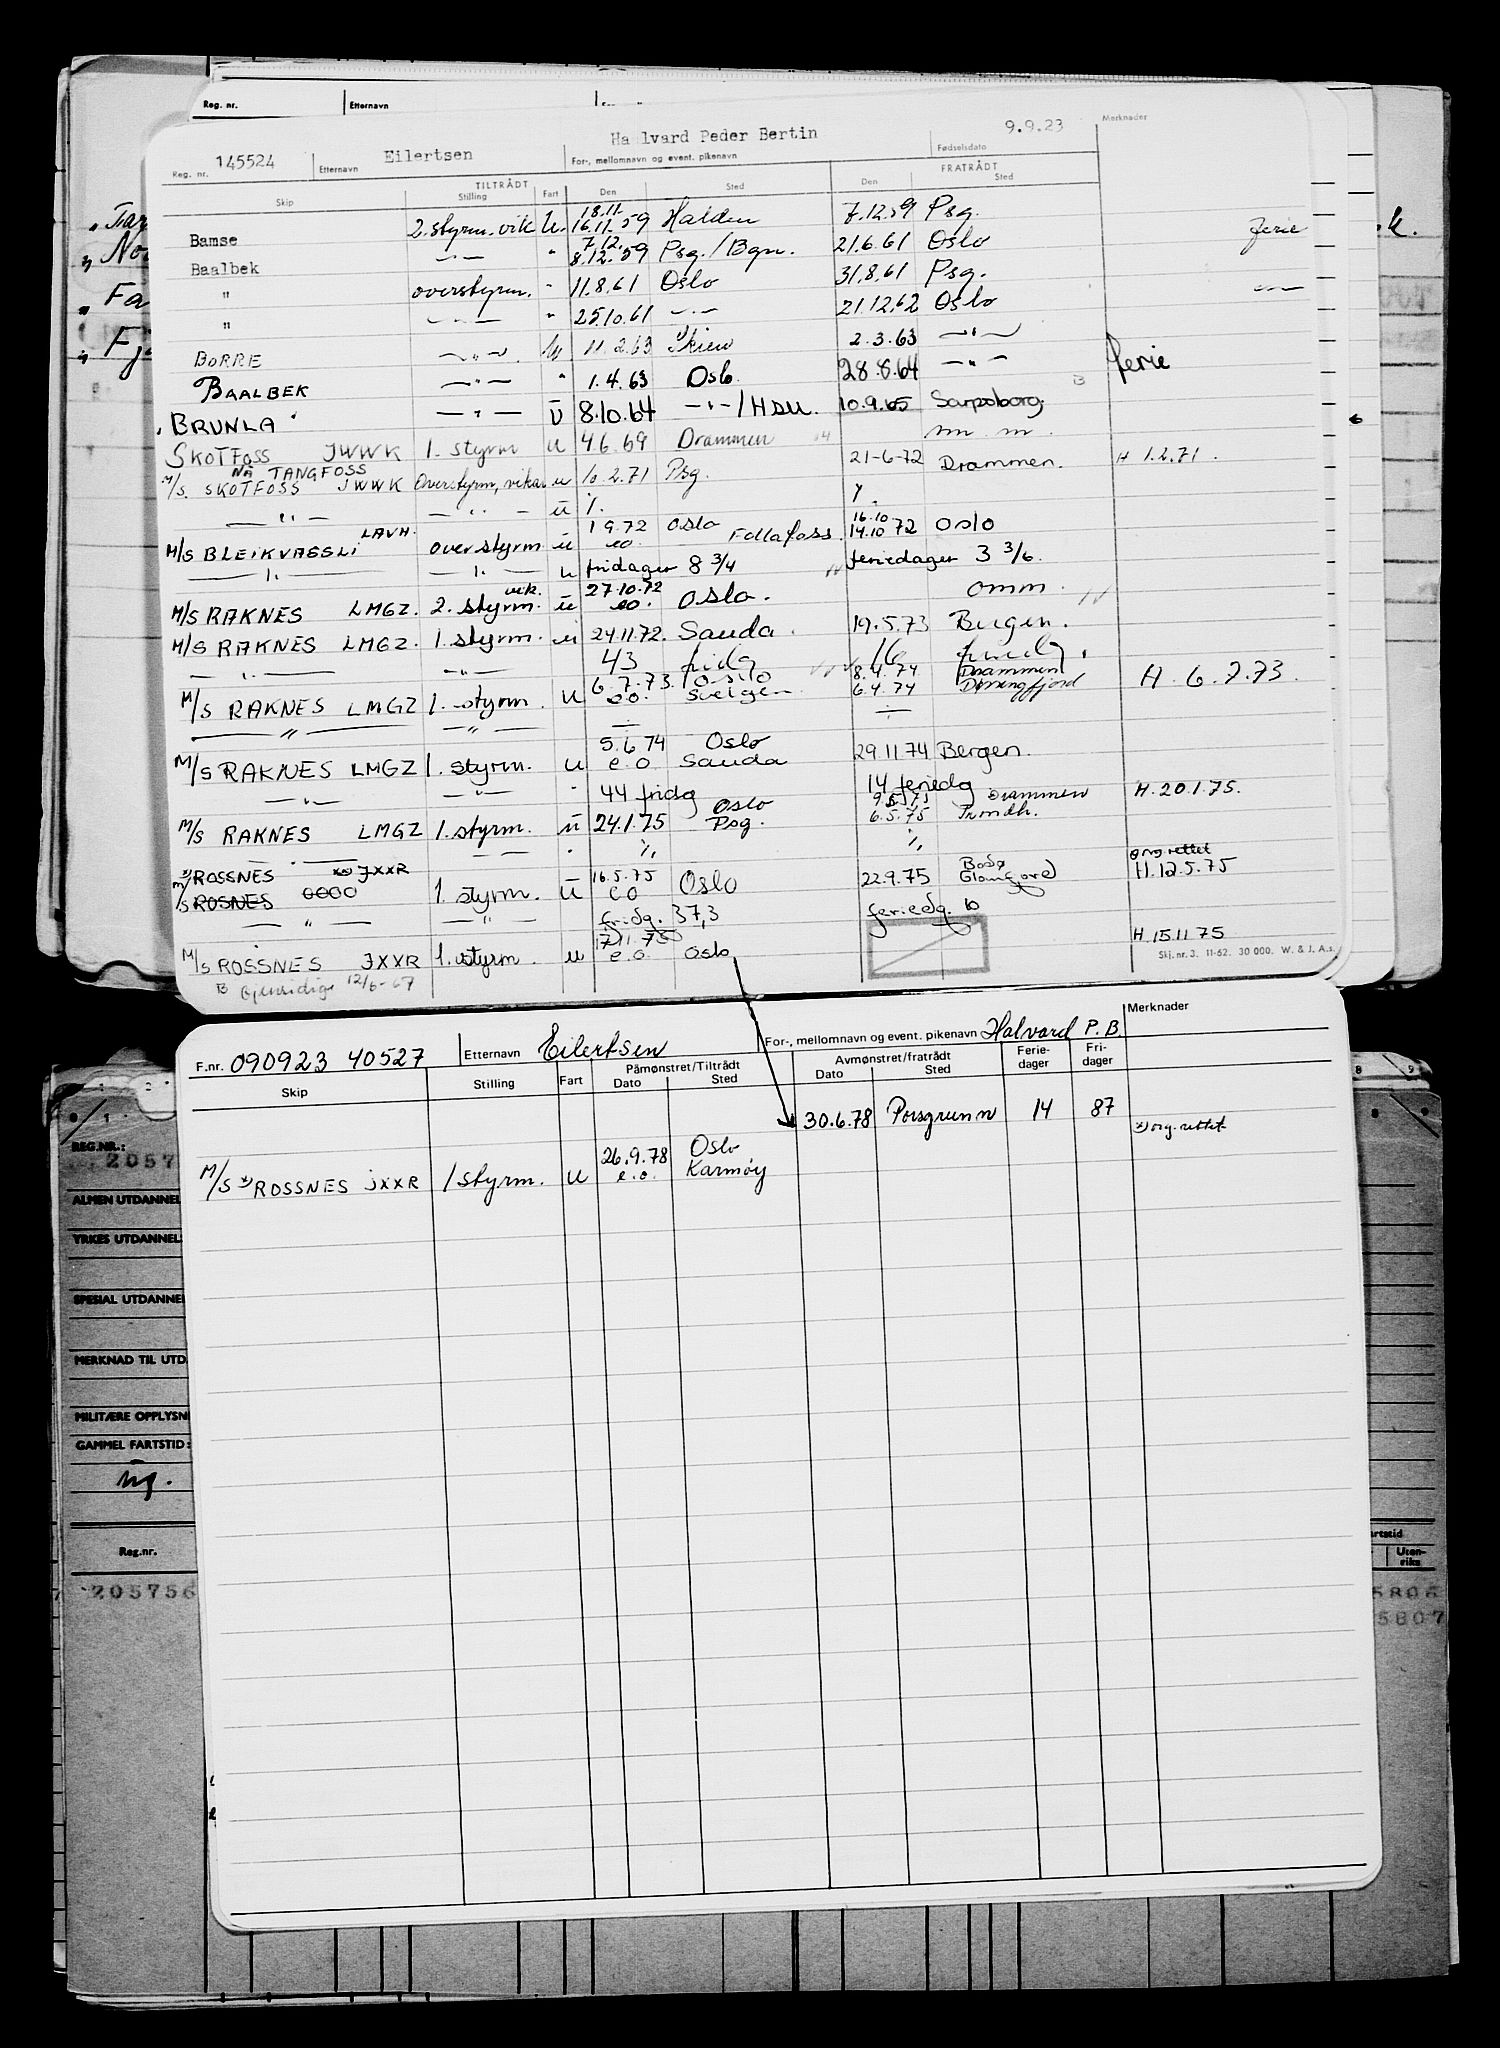 Reg. nr. Etternavn
145524 Eilertsen Halvard Peder Bertin 9.9.23 Merknader
Reg. nr. Etternavn For-, mellomnavn og event. pikenavn Fødselsdato
TILTRÅDT FRATRÅDT
Skip Stilling Fart Den Sted Den Sted
18.11.
Bamse 2. styrm. vik U. 16.11.59 Halden 7.12.59 Psg.
7.12.
Baalbek —"— " 8.12.59 Psg./Bgn. 21.6.61 Oslo ferie
" overstyrm. " 11.8.61 Oslo 31.8.61 Psg.
" —"— " 25.10.61 —"— 21.12.62 Oslo —"—
BORRE —"— U 11.2.63 Skien 2.3.63 —"—
BAALBEK —"— " 1.4.63 Oslo 28.8.64 —"— ferie
BRUNLA —"— U 8.10.64 —"—/HSU. 10.9.65 Sarpsborg
SKOTFOSS JWWK 1. styrm u 4.6.69 Drammen m m.
NÅ TANGFOSS
M/S. SKOTFOSS JWWK Overstyrm, vikar u 10.2.71 Psg. 21-6-72 Drammen. H 1.2.71.
—"— —"— u ٪. ٪.
LAVH. 1.9.72 Oslo 16.10
M/S BLEIKVASSLI overstyrm u eo. Follafoss 14.10.72 Oslo
—"— —"— u fridager 8 3/4 feriedager 3 3/6.
vik. 27.10.72
M/S RAKNES LMGZ. 2. styrm. u eo. Oslo. omm.
M/S RAKNES LMGZ. 1. styrm. u 24.11.72. Sauda. 19.5.73 Bergen.
—"— —"— 43 fridg 16 feriedg.
6.7.73. Oslo 8.4.74 Drammen
M/S RAKNES LMGZ 1. styrm. u eo. Svelgen 6.4.74 H. 6.7.73.
—"— —"— ÷ ÷
5.6.74 Oslo
M/S RAKNES LMGZ 1. styrm. u e.o. Sauda 29.11.74 Bergen.
—"— —"— " 44 fridg 14 feriedg
Oslo 9.5.75 Drammen H. 20.1.75.
M/S RAKNES LMGZ 1. styrm. u 24.1.75 Psg. 6.5.75 Trondh.
—"— —"— " ٪ ٪
x) ROSSNES x) JXXR 16.5.75 Bodø org rettet
M/S ROSNES OOOO 1. styrm. u eo Oslo 22.9.75 Glomfjord H. 12.5.75
—"— —"— fridg. 37,3 feriedg. 10
17.11.75
M/S ROSSNES JXXR 1. styrm. u e.o. Oslo H. 15.11.75
B Gjensidige 12/6-67
Skj. nr. 3. 11-62. 30 000. W. & J. A.s.
F.nr. 090923 40527 Etternavn Eilertsen For-, mellomnavn og event. pikenavn Halvard P.B. Merknader
Påmønstret/Tiltrådt Avmønstret/fratrådt Ferie- Fri-
Skip Stilling Fart Dato Sted Dato Sted dager dager
30.6.78 Porsgrunn 14 87
x) org. rettet
26.9.78 Oslo
M/S x) ROSSNES JXXR 1 styrm. u e.o. Karmøy
REG.NR.:
2057
ALMEN UTDANNEL
YRKES UTDANNEL
SPESIAL UTDANNEL
MERKNAD TIL UTD
MILITÆRE OPPLYSN
GAMMEL FARTSTID:
ng.
Reg.nr.
205756
artstid
Uten-
riks
5806
5807